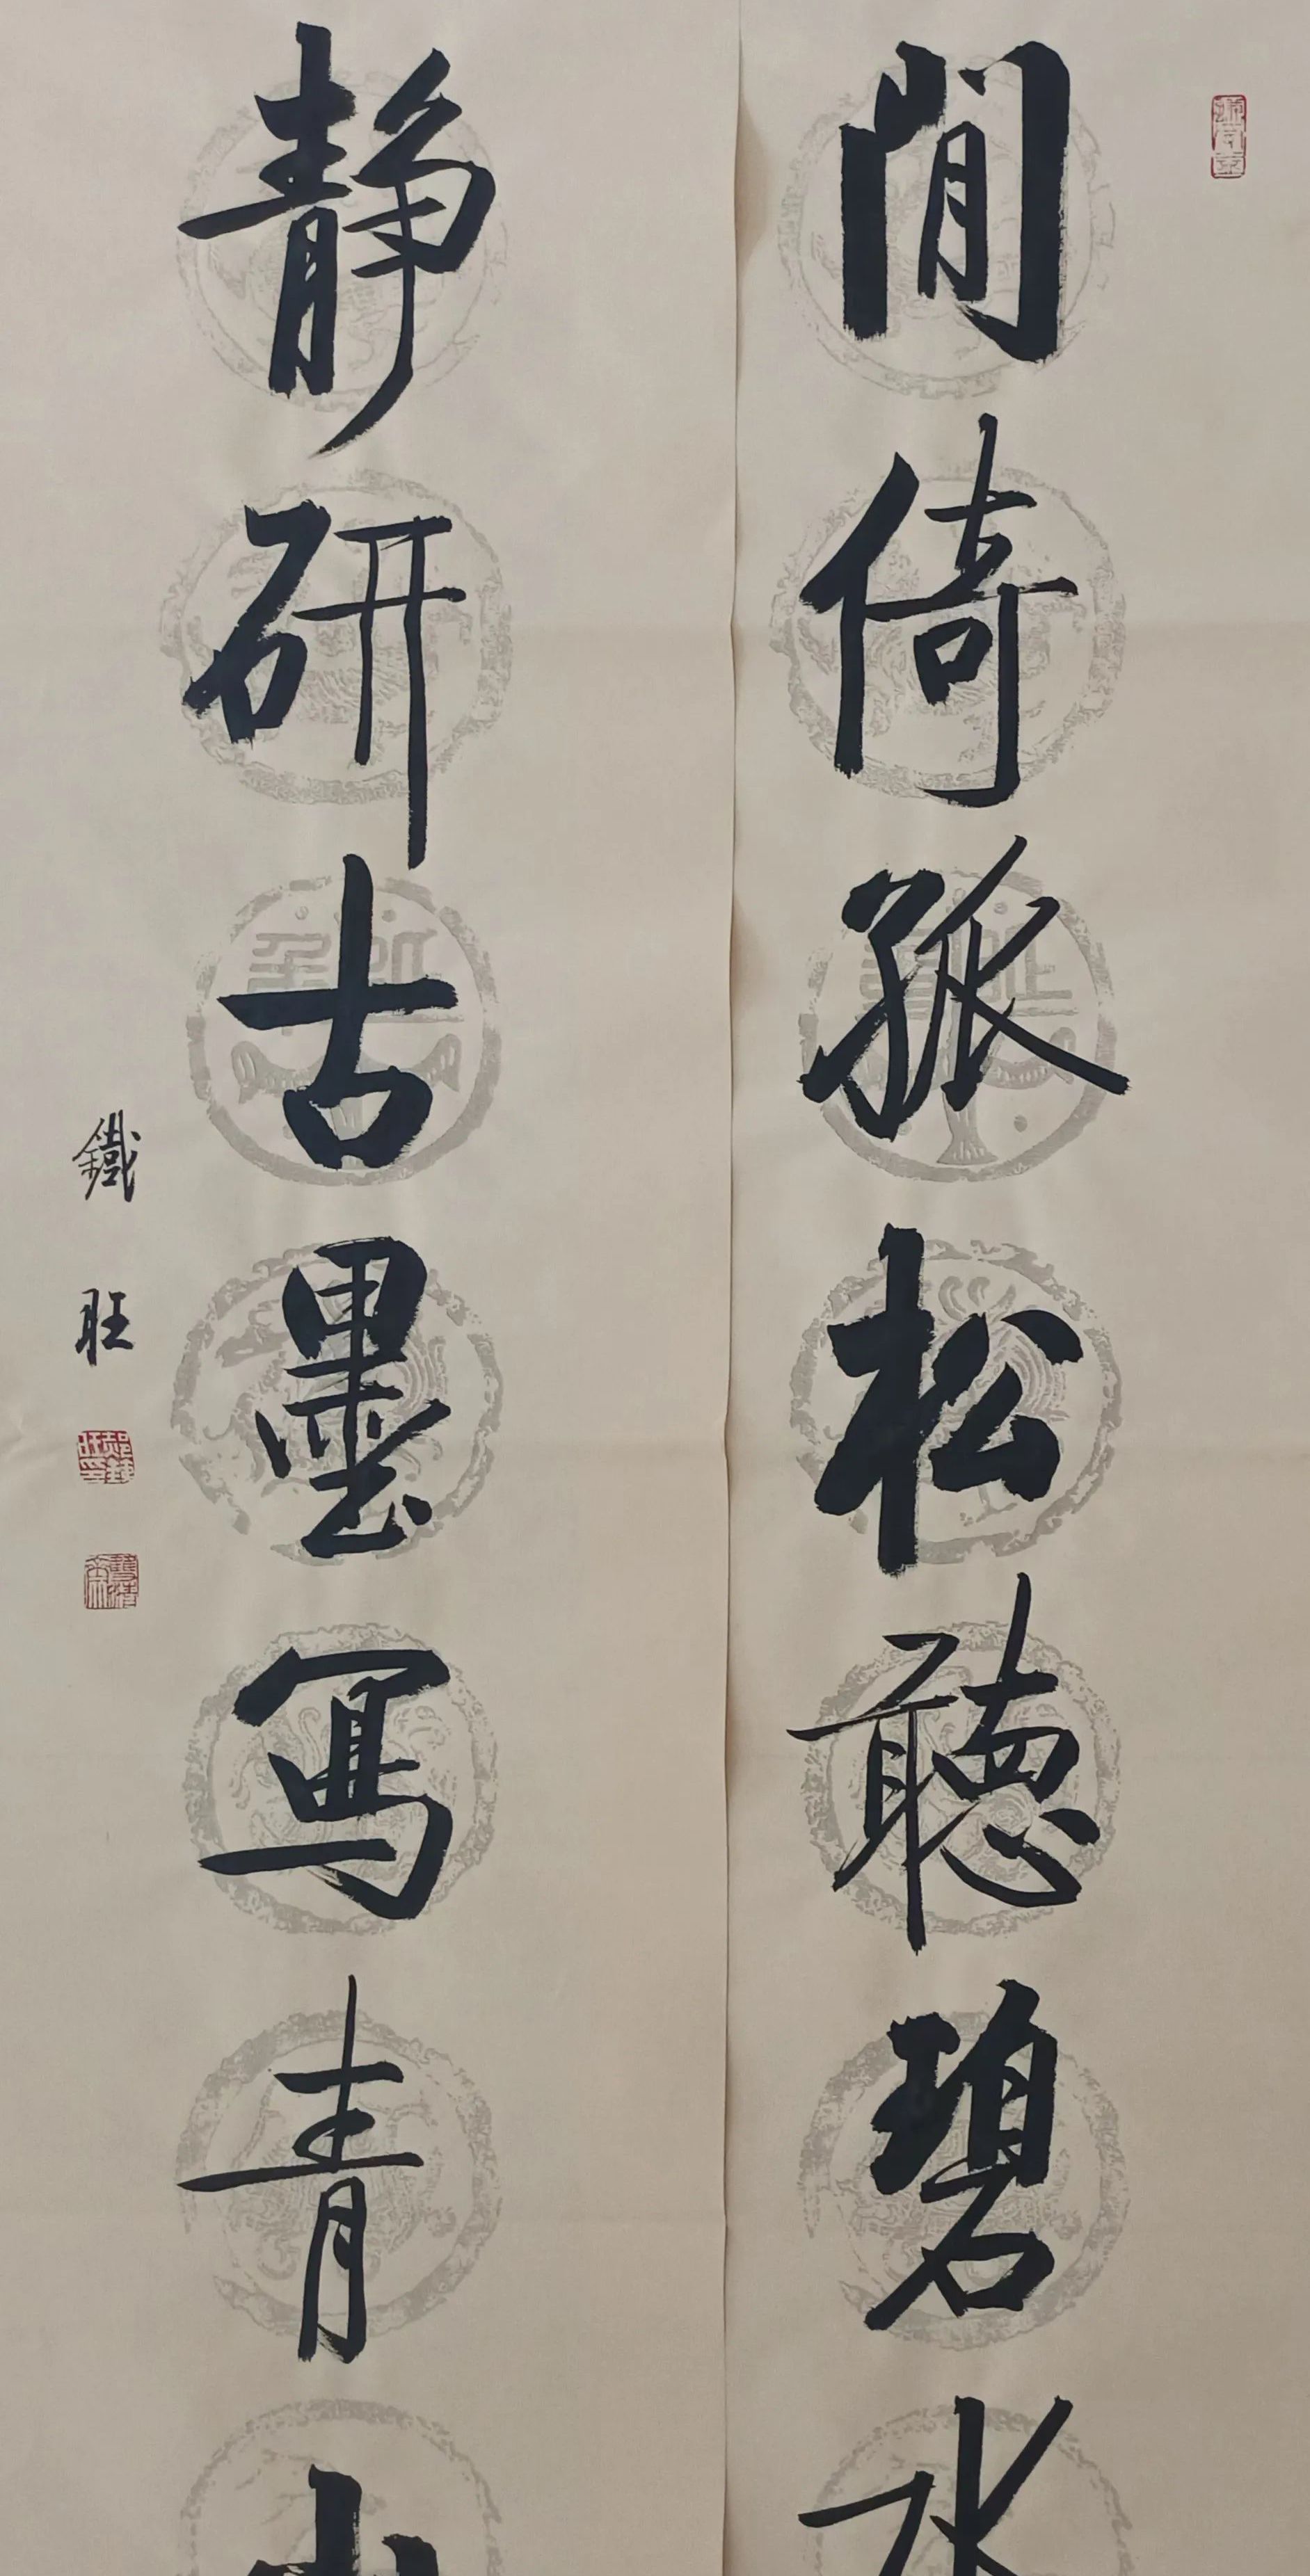 閒倚孤松聽碧水
静研古墨寫青山
鐵旺